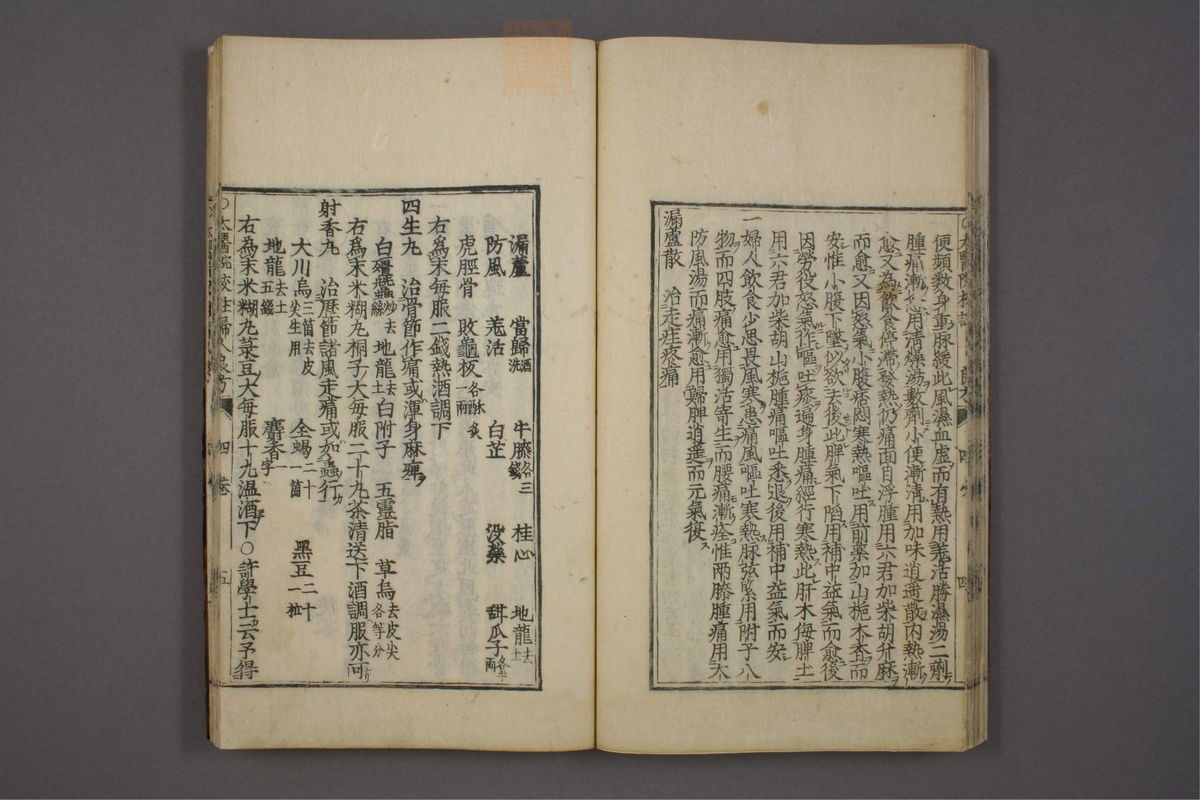 便頻數身重脉緩此風濕血虛而有熱用羌活勝濕湯二劑
腫痛漸愈用清燥湯數劑小便漸清用加味逍遙散內熱漸
愈又為飲食停滯發熱仍痛面目浮腫用六君加柴胡升麻
而愈又因怒氣小腹痞悶寒熱嘔吐用前藥加山梔木香而
安惟小腹下墜似欲去後此脾氣下陷用補中益氣而愈後
因勞役怒氣作嘔吐痰遍身腫痛經行寒熱此肝木侮脾土
用六君加柴胡山梔腫痛嘔吐悉退後用補中益氣而安
一婦人飲食少思畏風寒患痛風嘔吐寒熱脉弦緊用附子八
物而四肢痛愈用獨活寄生而腰痛漸痊惟兩膝腫痛用大
防風湯而痛漸愈用歸脾逍遙而元氣復
漏蘆散 治走疰疼痛
漏蘆 當歸酒洗 牛膝各三錢 桂心 地龍去土
防風 羌活 白芷 沒藥 甜瓜子各半兩
虎脛骨 敗龜板各酥炙一兩
右為末每服二錢熱酒調下
四生丸 治骨節作痛或渾身麻痺
白殭蠶炒去絲 地龍去土 白附子 五靈脂 草烏去皮尖各等分
右為末米糊丸桐子大每服二十丸茶清送下酒調服亦可
射香丸 治歷節諸風走痛或如蟲行
大川烏三箇去皮尖生用 全蝎二十一箇 黑豆二十一粒
地龍去土五錢 麝香一字
右為末米糊丸菉豆大每服十丸溫酒下○許學士云予得
○太醫院校註婦人良方 四卷 五